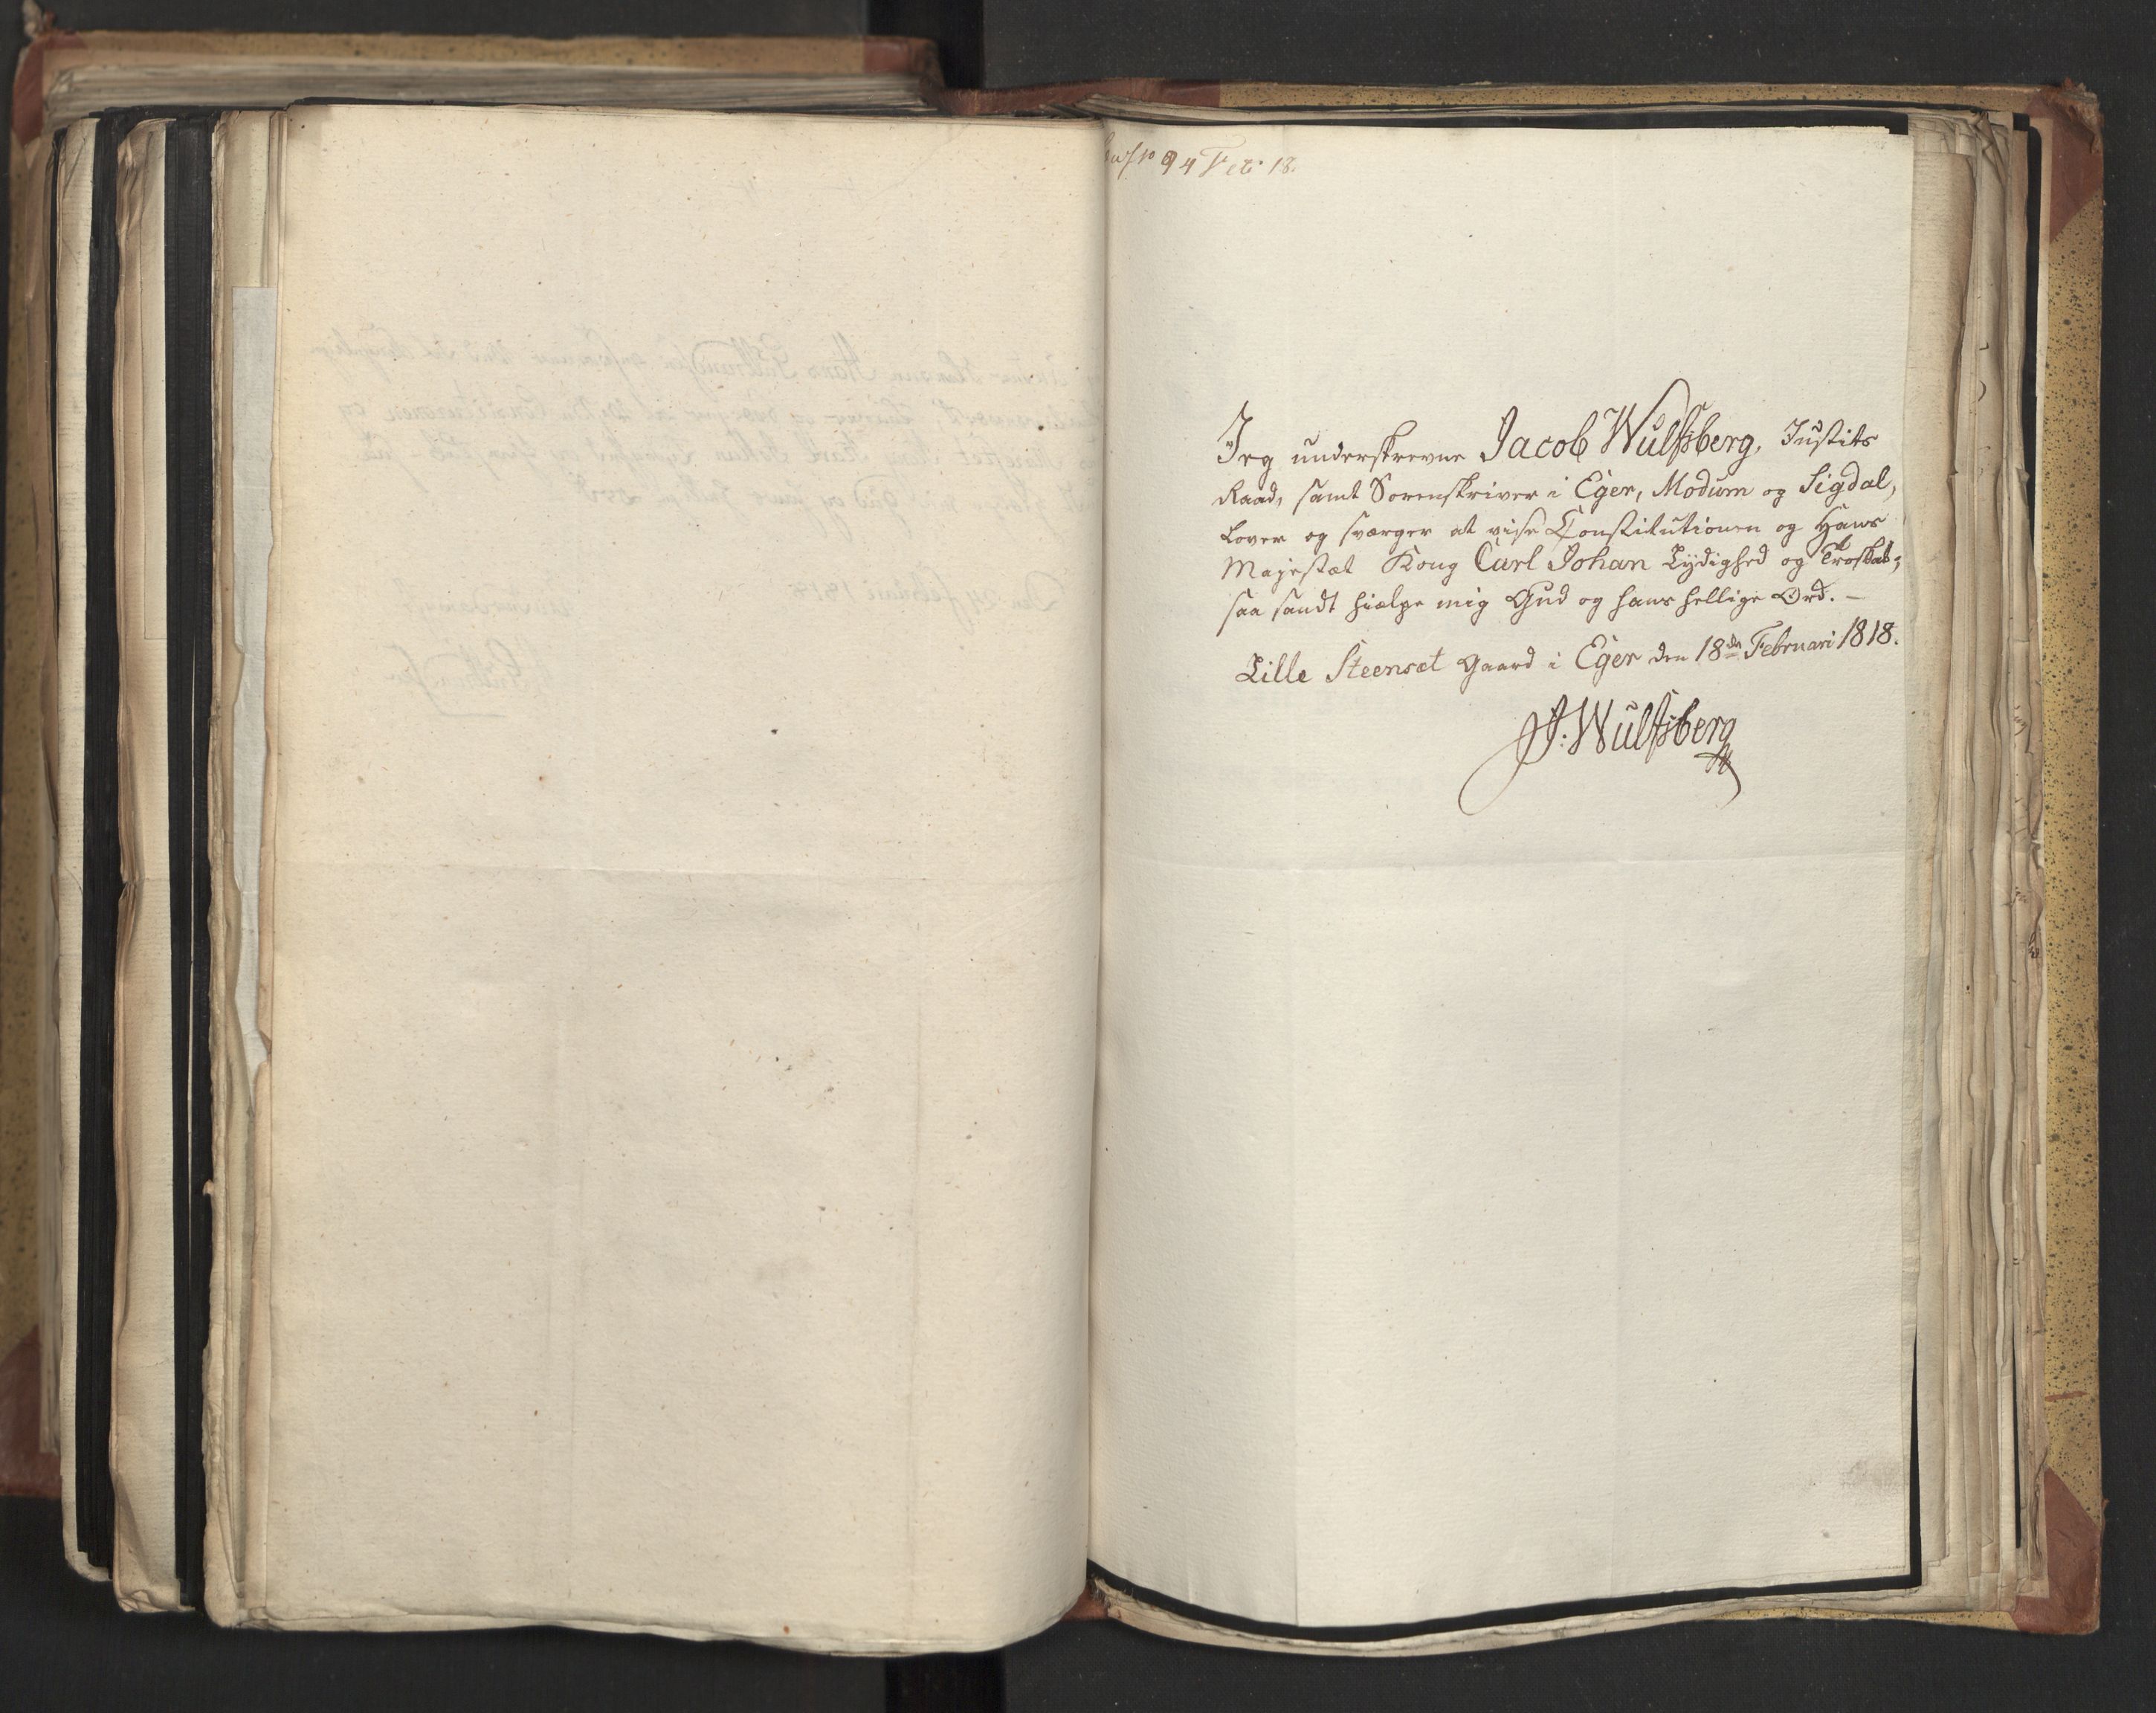 94 Feb 18.
Jeg underskrevne Jacob Wulfsberg, Justits
Raad, samt Sorenskriver i Eger, Modum og Sigdal,
lover og sværger at vise Constitutionen og Hans
Majestæt Kong Carl Johan Lydighed og Troskab;
saa sandt hielpe mig Gud og hans hellige Ord. –
Lille Steenset Gaard i Eger den 18de Februari 1818.
J: Wulfsberg